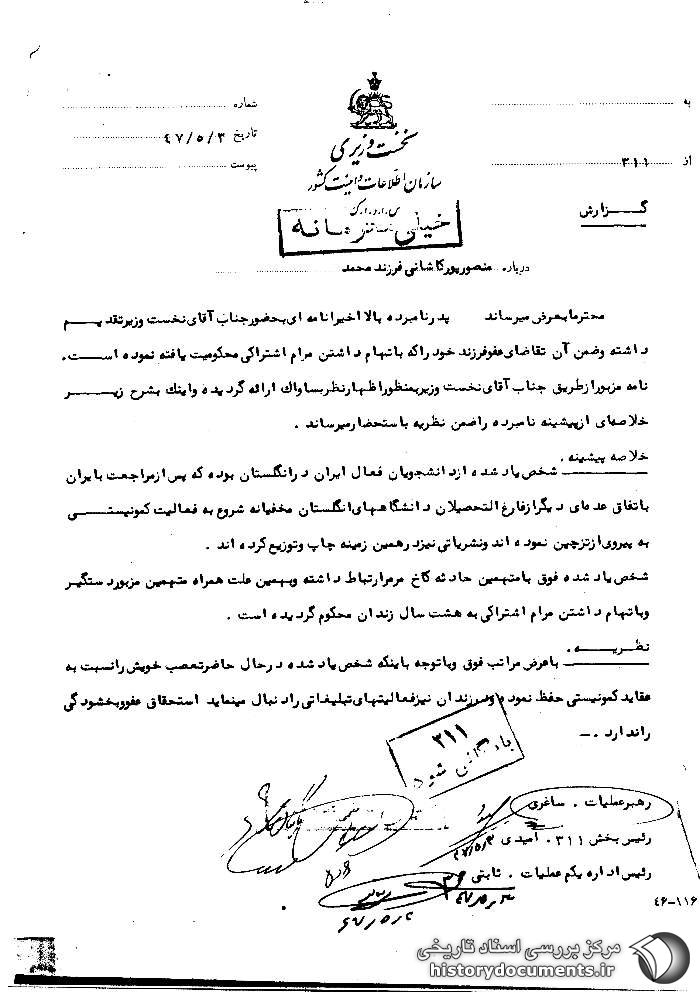 به
شماره
نخست وزیری
تاریخ ۴۷/۵/۳
سازمان اطلاعات و امنیت کشور
از ۳۱۱
پیوست
س.ا.و.ا.ک
گزارش
خیلی محرمانه
درباره منصور پور کاشانی فرزند محمد
محترما بعرض میرساند پدر نامبرده بالا اخیرا نامه ای بحضور جناب آقای نخست وزیر تقدیم
داشته وضمن آن تقاضای عفو فرزند خود را که باتهام داشتن مرام اشتراکی محکومیت یافته نموده است.
نامه مزبور از طریق جناب آقای نخست وزیر بمنظور اظهار نظر بساواک ارائه گردیده و اینک بشرح زیر
خلاصه‌ای از پیشینه نامبرده را ضمن نظریه باستحضار میرساند .
خلاصه پیشینه .
شخص یاد شده از دانشجویان فعال ایران در انگلستان بوده که پس از مراجعت بایران
باتفاق عده‌ای دیگر از فارغ التحصیلان دانشگاههای انگلستان مخفیانه شروع به فعالیت کمونیستی
به پیروی از تز چین نموده اند و نشریاتی نیز در همین زمینه چاپ و توزیع کرده اند .
شخص یاد شده فوق با متهمین حادثه کاخ مرمر ارتباط داشته و بهمین علت همراه متهمین مزبور دستگیر
و باتهام داشتن مرام اشتراکی به هشت سال زندان محکوم گردیده است .
نظریه .
با عرض مراتب فوق و با توجه باینکه شخص یاد شده در حال حاضر تعصب خویش را نسبت به
عقاید کمونیستی حفظ نموده و در زندان نیز فعالیتهای تبلیغاتی را دنبال مینماید استحقاق عفو و بخشودگی
را ندارد . -
۳۱۱
بایگانی شود
رهبر عملیات . ساغری
رئیس بخش ۳۱۱ . امیدی ۴۷/۵/۳
رئیس اداره یکم عملیات . ثابتی
۴۶-۱۱۶
مرکز بررسی اسناد تاریخی
historydocuments.ir